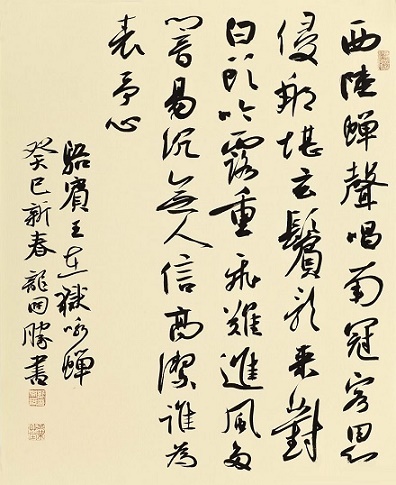 西陸蟬聲唱南冠客思
侵那堪玄鬢影來對
白頭吟露重飛難進風多
響易沉無人信高潔誰為
表予心
駱賓王在獄咏蟬
癸巳新春龍開勝書